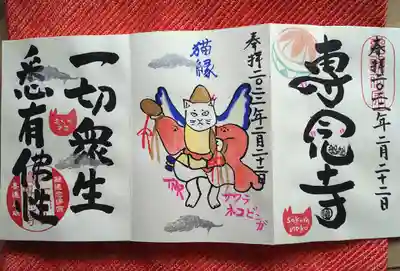 奉拝二〇二二年二月二十二日
専念寺
sakura
moku
奉拝二〇二二年二月二十二日
猫縁
TNR
サクラ
ネコビンガ
一切衆生
悉有佛性